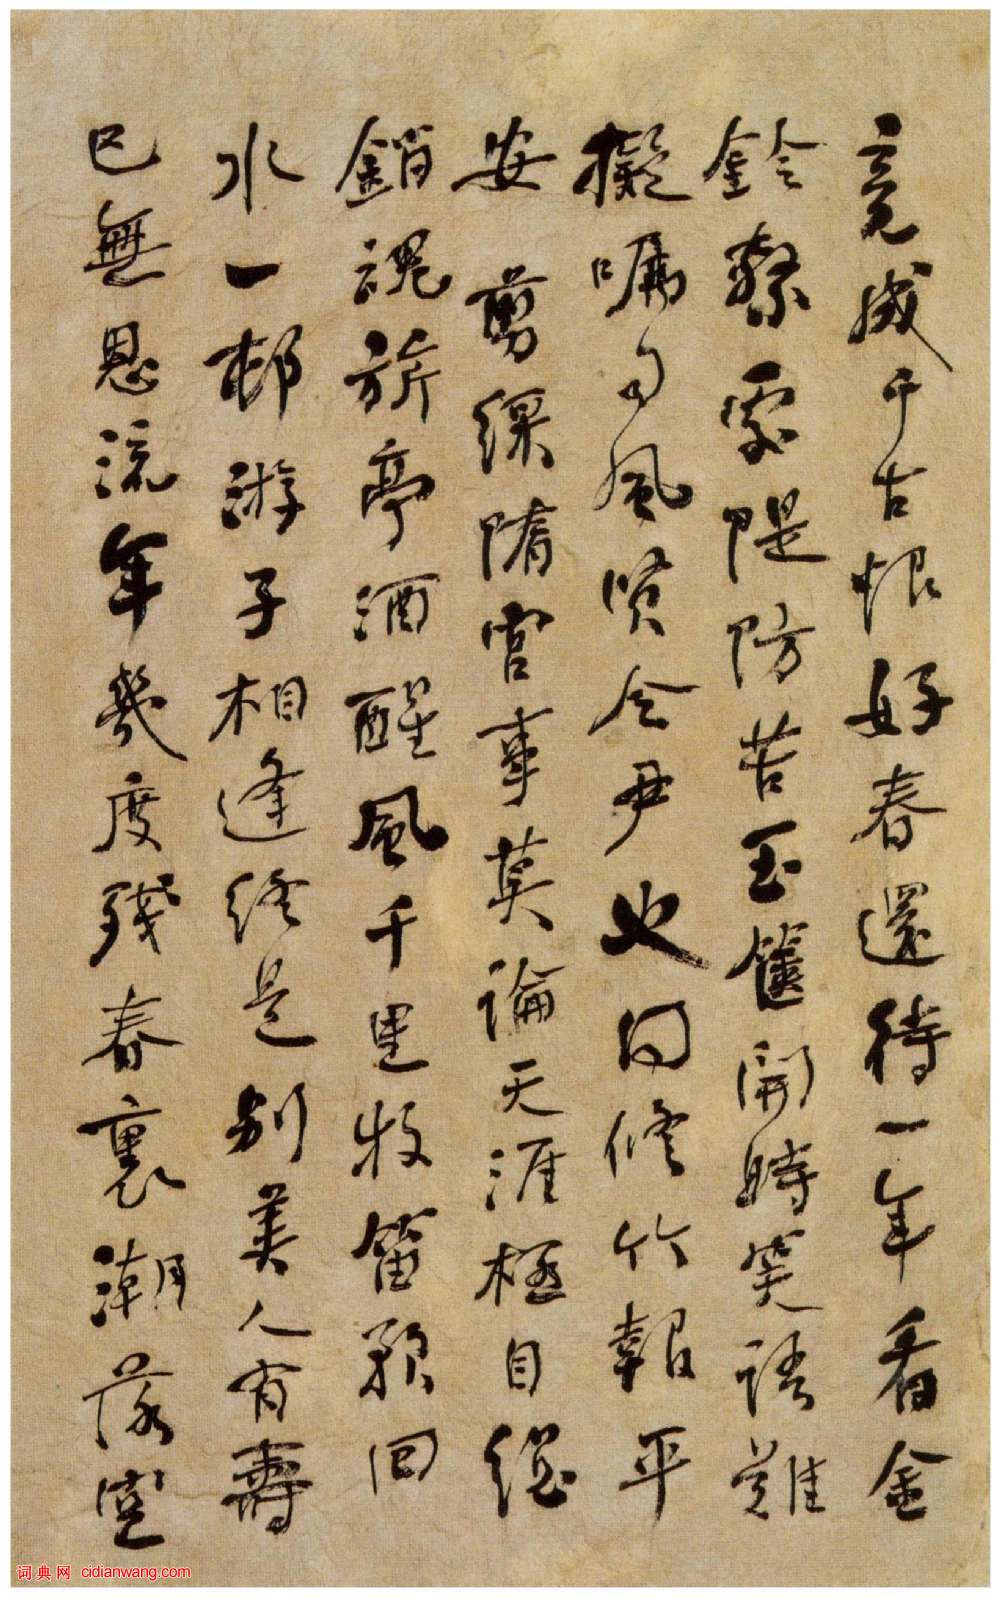 竟成千古恨好春還待一年看金
鈴繫處隄防苦玉篋開時笑語難
擬囑司風賢令尹也同修竹報平
安 剪綵隋宮事莫論天涯極目總
銷魂旂亭酒醒風千里牧笛歌回
水一邨游子相逢終是別美人有壽
已無恩流年幾度殘春裏潮落空
词典网 cidianwang.com